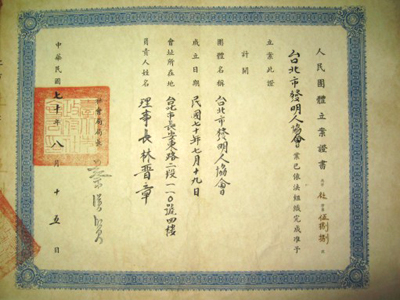 人民團體立案證書
台北市發明人協會業已依法組織完成准予
立案此證
計開
團體名稱 台北市發明人協會
成立日期 民國七十年七月十九日
會址所在地 台北市長安東路二段一一0號四樓
負責人姓名 理事長林晋章
社會局局長
中華民國七十年八月十五日